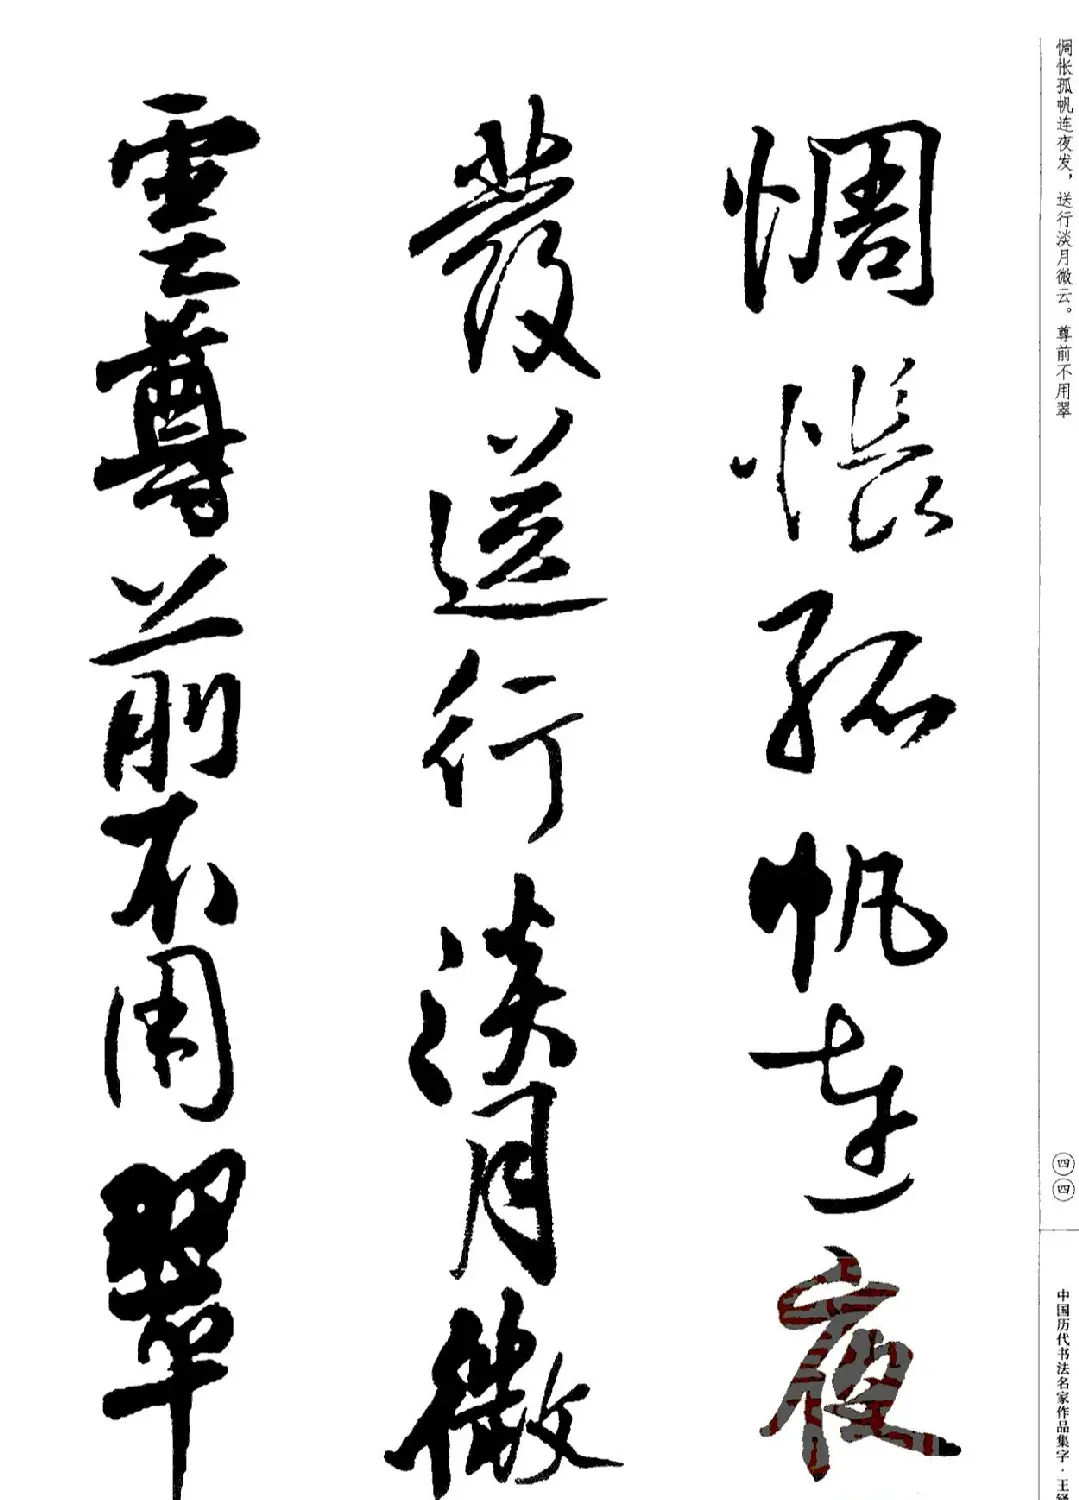 惆怅孤帆连夜发，送行淡月微云。尊前不用翠
惆悵孤帆連夜
發送行淡月微
雲尊前不用翠
四四
中国历代书法名家作品集字·王铎